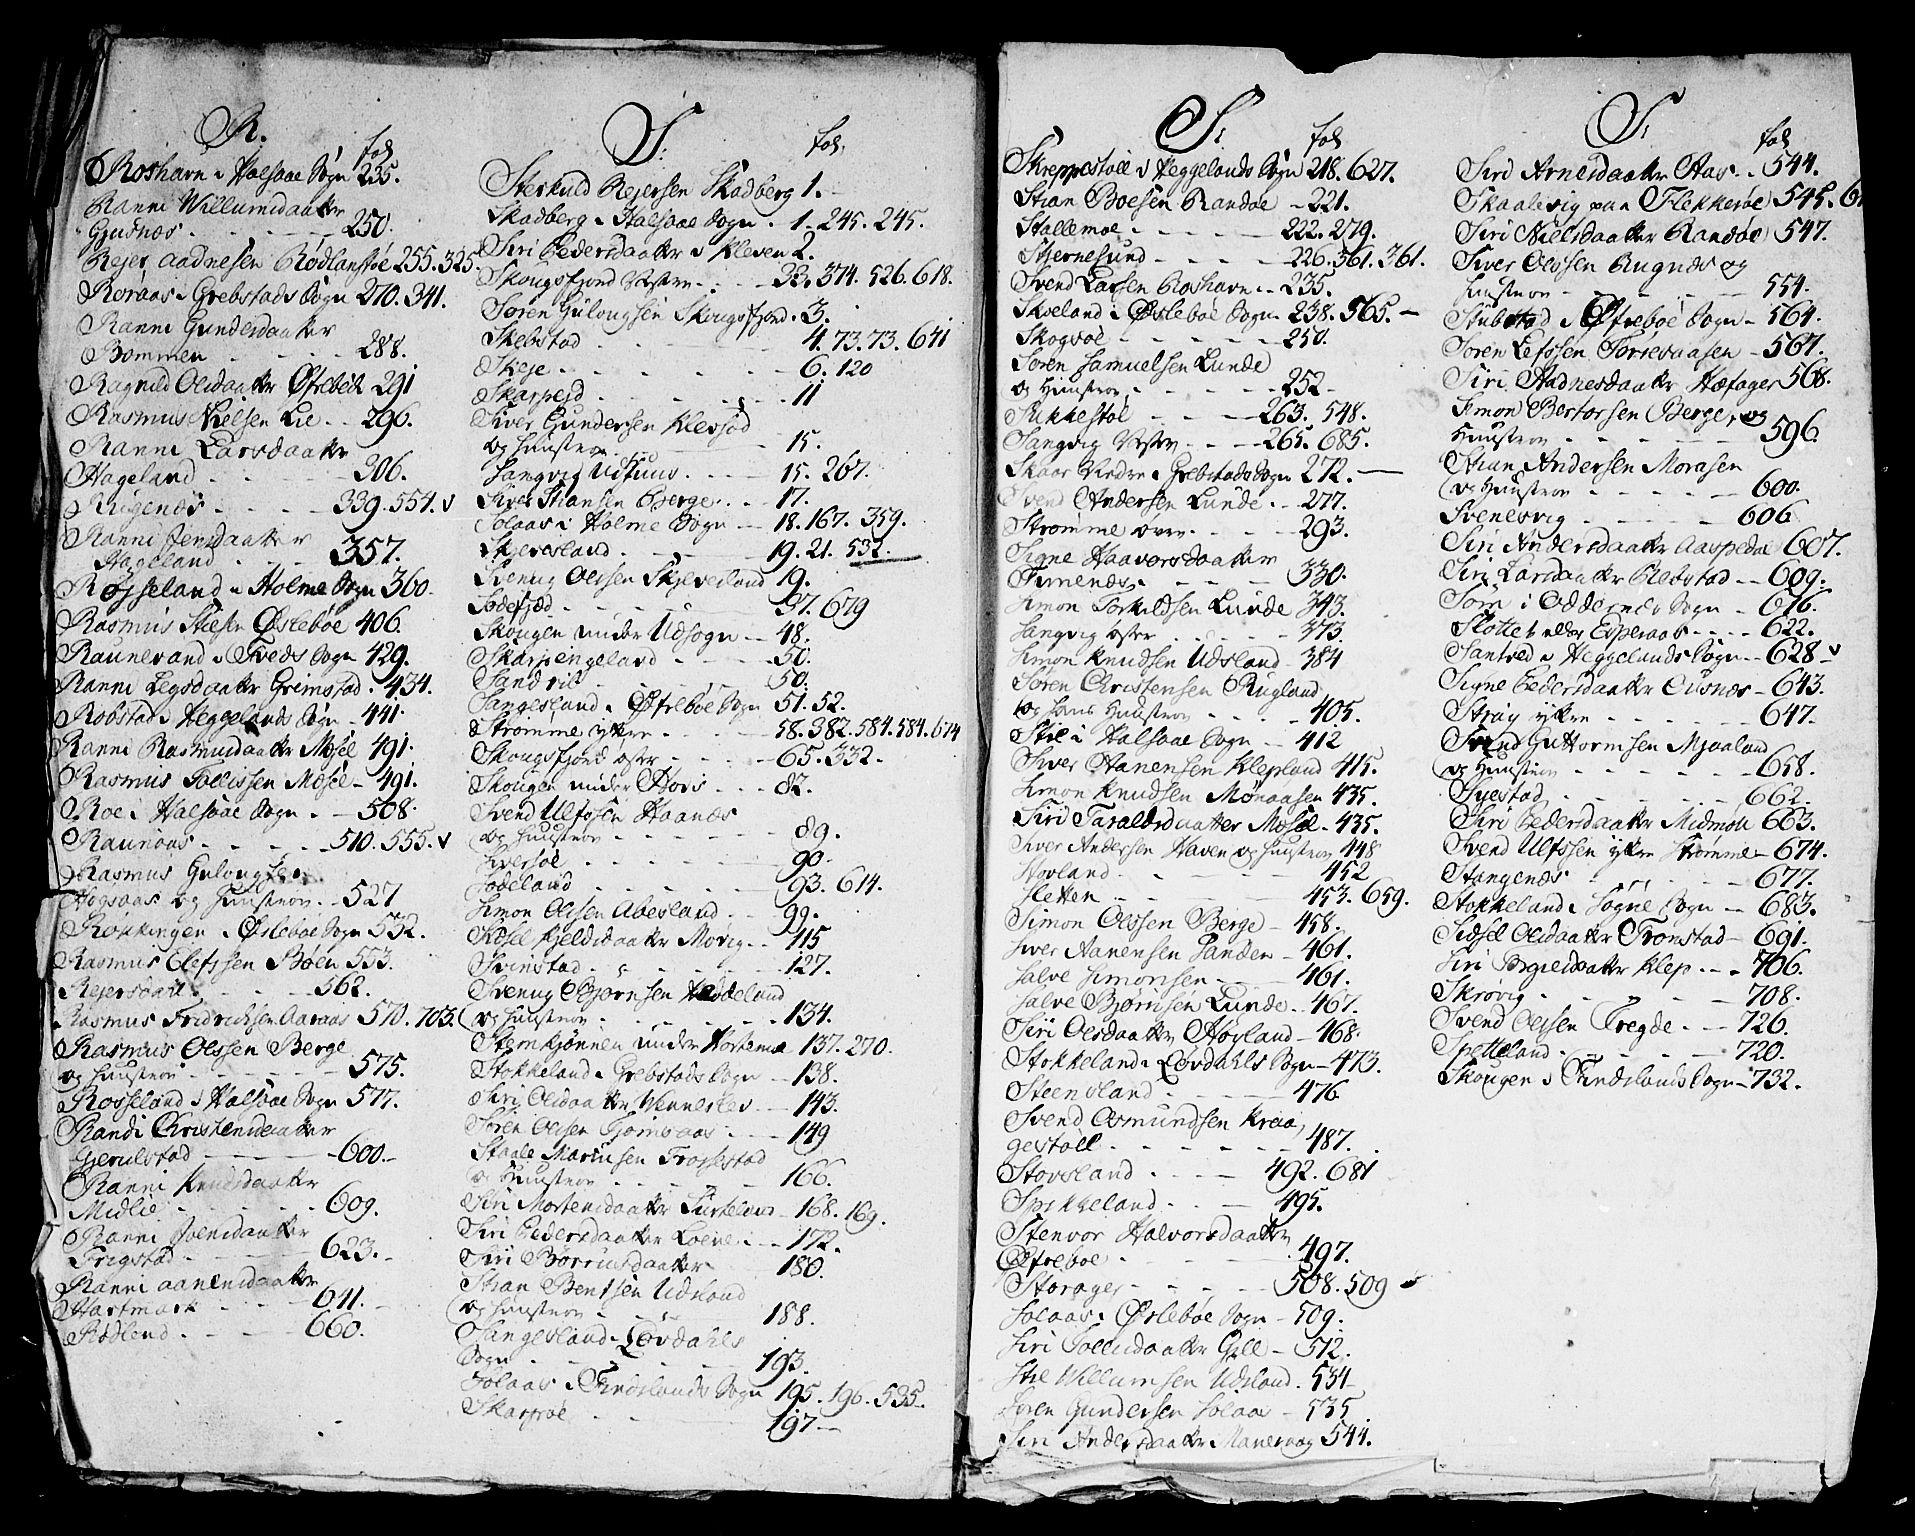 R.
fol
Roshavn i Halsaae Sogn 235.
Ranni Willumsdaatter
Gusnæs - - - 250.
Rejer Aadnesen Rødlanstøe 255. 325
Roraas i Grebstads Sogn 270. 341.
Ranni Gundersdaatter
Bommen - - - 288.
Ragnild Olsdaatter Øfrebøe 291
Rasmus Nielsen Lie - - 296.
Ranni Larsdaatter
Hageland - - - 306.
Rugenæs - - - 339. 554. v
Ranni Jensdaatter
Hageland - - - 357.
Røysseland i Holme Sogn 360.
Rasmus Øslebøe 406.
Raunevand i Tveds Sogn 429.
Ranni Legsdaatter Grimstad. 434.
Robstad i Heggelands Sogn - 441.
Ranni Rasmusdaatter Mosel 491.
Rasmus Tollissen Møsel - 491.
Roe i Halsaae Sogn - - 508.
Raunaas - - - 510. 555. v
Rasmus Gulongsen
Hogsaas og Huustrov - - 527
Røkkingen i Øslebøe Sogn 532.
Rasmus Elefssen Bøen 553.
Rejersdall - - - 562.
Rasmus Fridrichsen Aaraas 570. 703.
Rasmus Olssen Berge
og Huustrov - - - 575.
Rosseland i Halsaae Sogn 577.
Randi Christensdaatter
Gjerulstad - - - 600. -
Ranni Knudsdaatter
Midlie - - - 609.
Ranni Joensdaatter
Frigstad - - - 623. -
Ranni Aanensdaatter
Hartmark - - - 641.
Rødlend - - - 660.
S.
fol.
Sterkuld Rejersen Skadberg 1. -
Skadberg i Halsaae Sogn - 1. 245. 245.
Siri Pedersdaatter i Kleven 2.
Skougsfjord Vestre - - - 32. 374. 526. 618.
Søren Gulougsen Skougsfjord. 3.
Skebstad - - - 4. 73. 73. 641
Skeje - - - 6. 120
Skarpejd - - - 11
Siver Gundersen Klevsød
og Huustrov - - - 15.
Sangvig Udtuns - - - 15. 267.
Siver Stiansen Berge - - - 17.
Solaas i Holme Sogn - - 18. 167. 359.
Skjeresland - - - 19. 21. 532.
Svenug Olssen Skjevesland 19.
Sodefjed - - - 37. 679
Skougen under Udsogn - - 48.
Skarpengeland - - - 50.
Sandvil - - - 50.
Sangesland i Øfrebøe Sogn 51. 52.
Strømme ytre - - - 58. 382. 584. 584. 674
Skougsfjord øster - - - 65. 332.
Skougen under Hovs - - - 82.
Svend Ulfsen Haanæs
og huustrov - - - 89.
Siversøe - - - 90.
Sodeland - - - 93. 614.
Simon Olssen Abesland - - 99.
Sidsel Kjeldsdaatter Movig - - 115
Svinstad - - - 127.
Svenug Bjørnsen Haddeland
og huustrov - - - 134.
Stemkjønnen under Hortemoe 137. 270.
Stokkeland i Grebstads Sogn - 138.
Siri Olsdaatter Venneslev - - 143.
Søren Olssen - - - 149
Staale Mariusen Frossestad
og Huustrov - - - 166.
Siri Mortensdaatter - 168. 169.
Siri Pedersdaatter Loene - - 172.
Siri Børrusdaatter - 180.
Stian Bentsen Udsland
og huustrov - - - 188.
Sangesland i Løvdahls
Sogn - - - 193.
Solaas i Findslands Sogn 195. 196. 535.
Skarpøe - - - 197 -
S.
fol
Skreppestøll i Heggelands Sogn 218. 627.
Stian Boesen Randøe - 221.
Stallemoe - - - 222. 279.
Stjernesund - - - 226. 361. 361.
Svend Larsen Roshavn - - 235.
Skieland i Øslebøe Sogn - 238. 565. -
Skogsøe - - - 250.
Søren Samuelsen Lunde
og Huustrov - - - 252 -
Rikkestøl - - - 263. 548.
Sangvig Vestre - - - 265. 685.
Skaar Nedre i Grebstads Sogn 272. -
Svend Andersen Lunde - - 277.
Strømme øvre - - - 293.
Signe Haavorsdaatter
Furenæs - - - 330.
Simon Torkildsen Lunde 343.
Sangvig østre - - - 373.
Simon Knudsen Udsland - 384
Søren Christensen Rugland
og hans Huustrov - - - 405.
Stie i Halsaae Sogn - - 412
Siver Hanensen Klepland 415.
Simon Knudsen Monaasen 435.
Siri Taraldsdaatter Mosel - 435.
Siver Andersen Haven og huustrov 448
Stovland - - - 452
Sletten - - - 453. 659.
Simon Olssen Berge - 458.
Siver Aanensen Sanden - 461.
Salve Simonsen - - - 461.
Salve Bjørnsen Lunde - 467.
Siri Olsdaatter Høyland - - 468.
Stokkeland i Løvdahls Sogn - 473.
Steensland - - - 476
Svend Osmundsen Kraa,
gestøll - - - 487.
Stovsland - - - 492. 681
Spikkeland - - - 495.
Stenvor Halvorsdaatter
Øfrebøe - - - 497.
Storager - - - 508. 509
Solaas i Øslebøe Sogn - 509.
Siri Tollisdaatter Gill - 512.
Stie Willumsen Udsland. 534
Søren Gundersen Solaas - 535
Siri Andersdaatter Manevaag 544.
S.
fol
Siri Arnesdaatter Aas - - 544.
Skaalevig paa Flekkerøe 545. 6
Siri Nielsdaatter Randøe 547.
Siver Olssen Rugnæs og
huustrov - - - 554.
Stubstad i Øfrebøe Sogn - 564.
Søren Lefssen Torresaasen - 567.
Siri Aadnesdaatter Hæfager 568.
Simon Bertorsen Berge, og
Huustrov - - - 596.
Stian Andersen Morasen
og Huustrov - - - 600.
Svenevig - - - 606
Siri Andersdaatter Aaspedal 607.
Siri Larsdaatter Rebstad - - 609.
Sørn i Oddernæs Sogn - 616.
Slottet eller Esperaas - - - 622.
Santved i Heggelands Sogn - - 628 - v
Signe Pedersdaatter Ousnæs - 643.
Stray ytre - - - 647.
Svend Guttormsen Mjaaland
og Huustrov - - - 658.
Syestad - - - 662.
Siri Pedersdaatter Midmoe 663.
Svend Ulfssen ytre Strømme - 674.
Stangenæs - - - 677.
Stokkeland i Søgne Sogn - - 683.
Sidsel Olsdaatter Tronstad - 691.
Siri Klep - - - 706.
Skrøvig - - - 708.
Svend Olssen Tregde - - - 726.
Spetteland - - - 720.
Skougen i Findslands Sogn - 732.